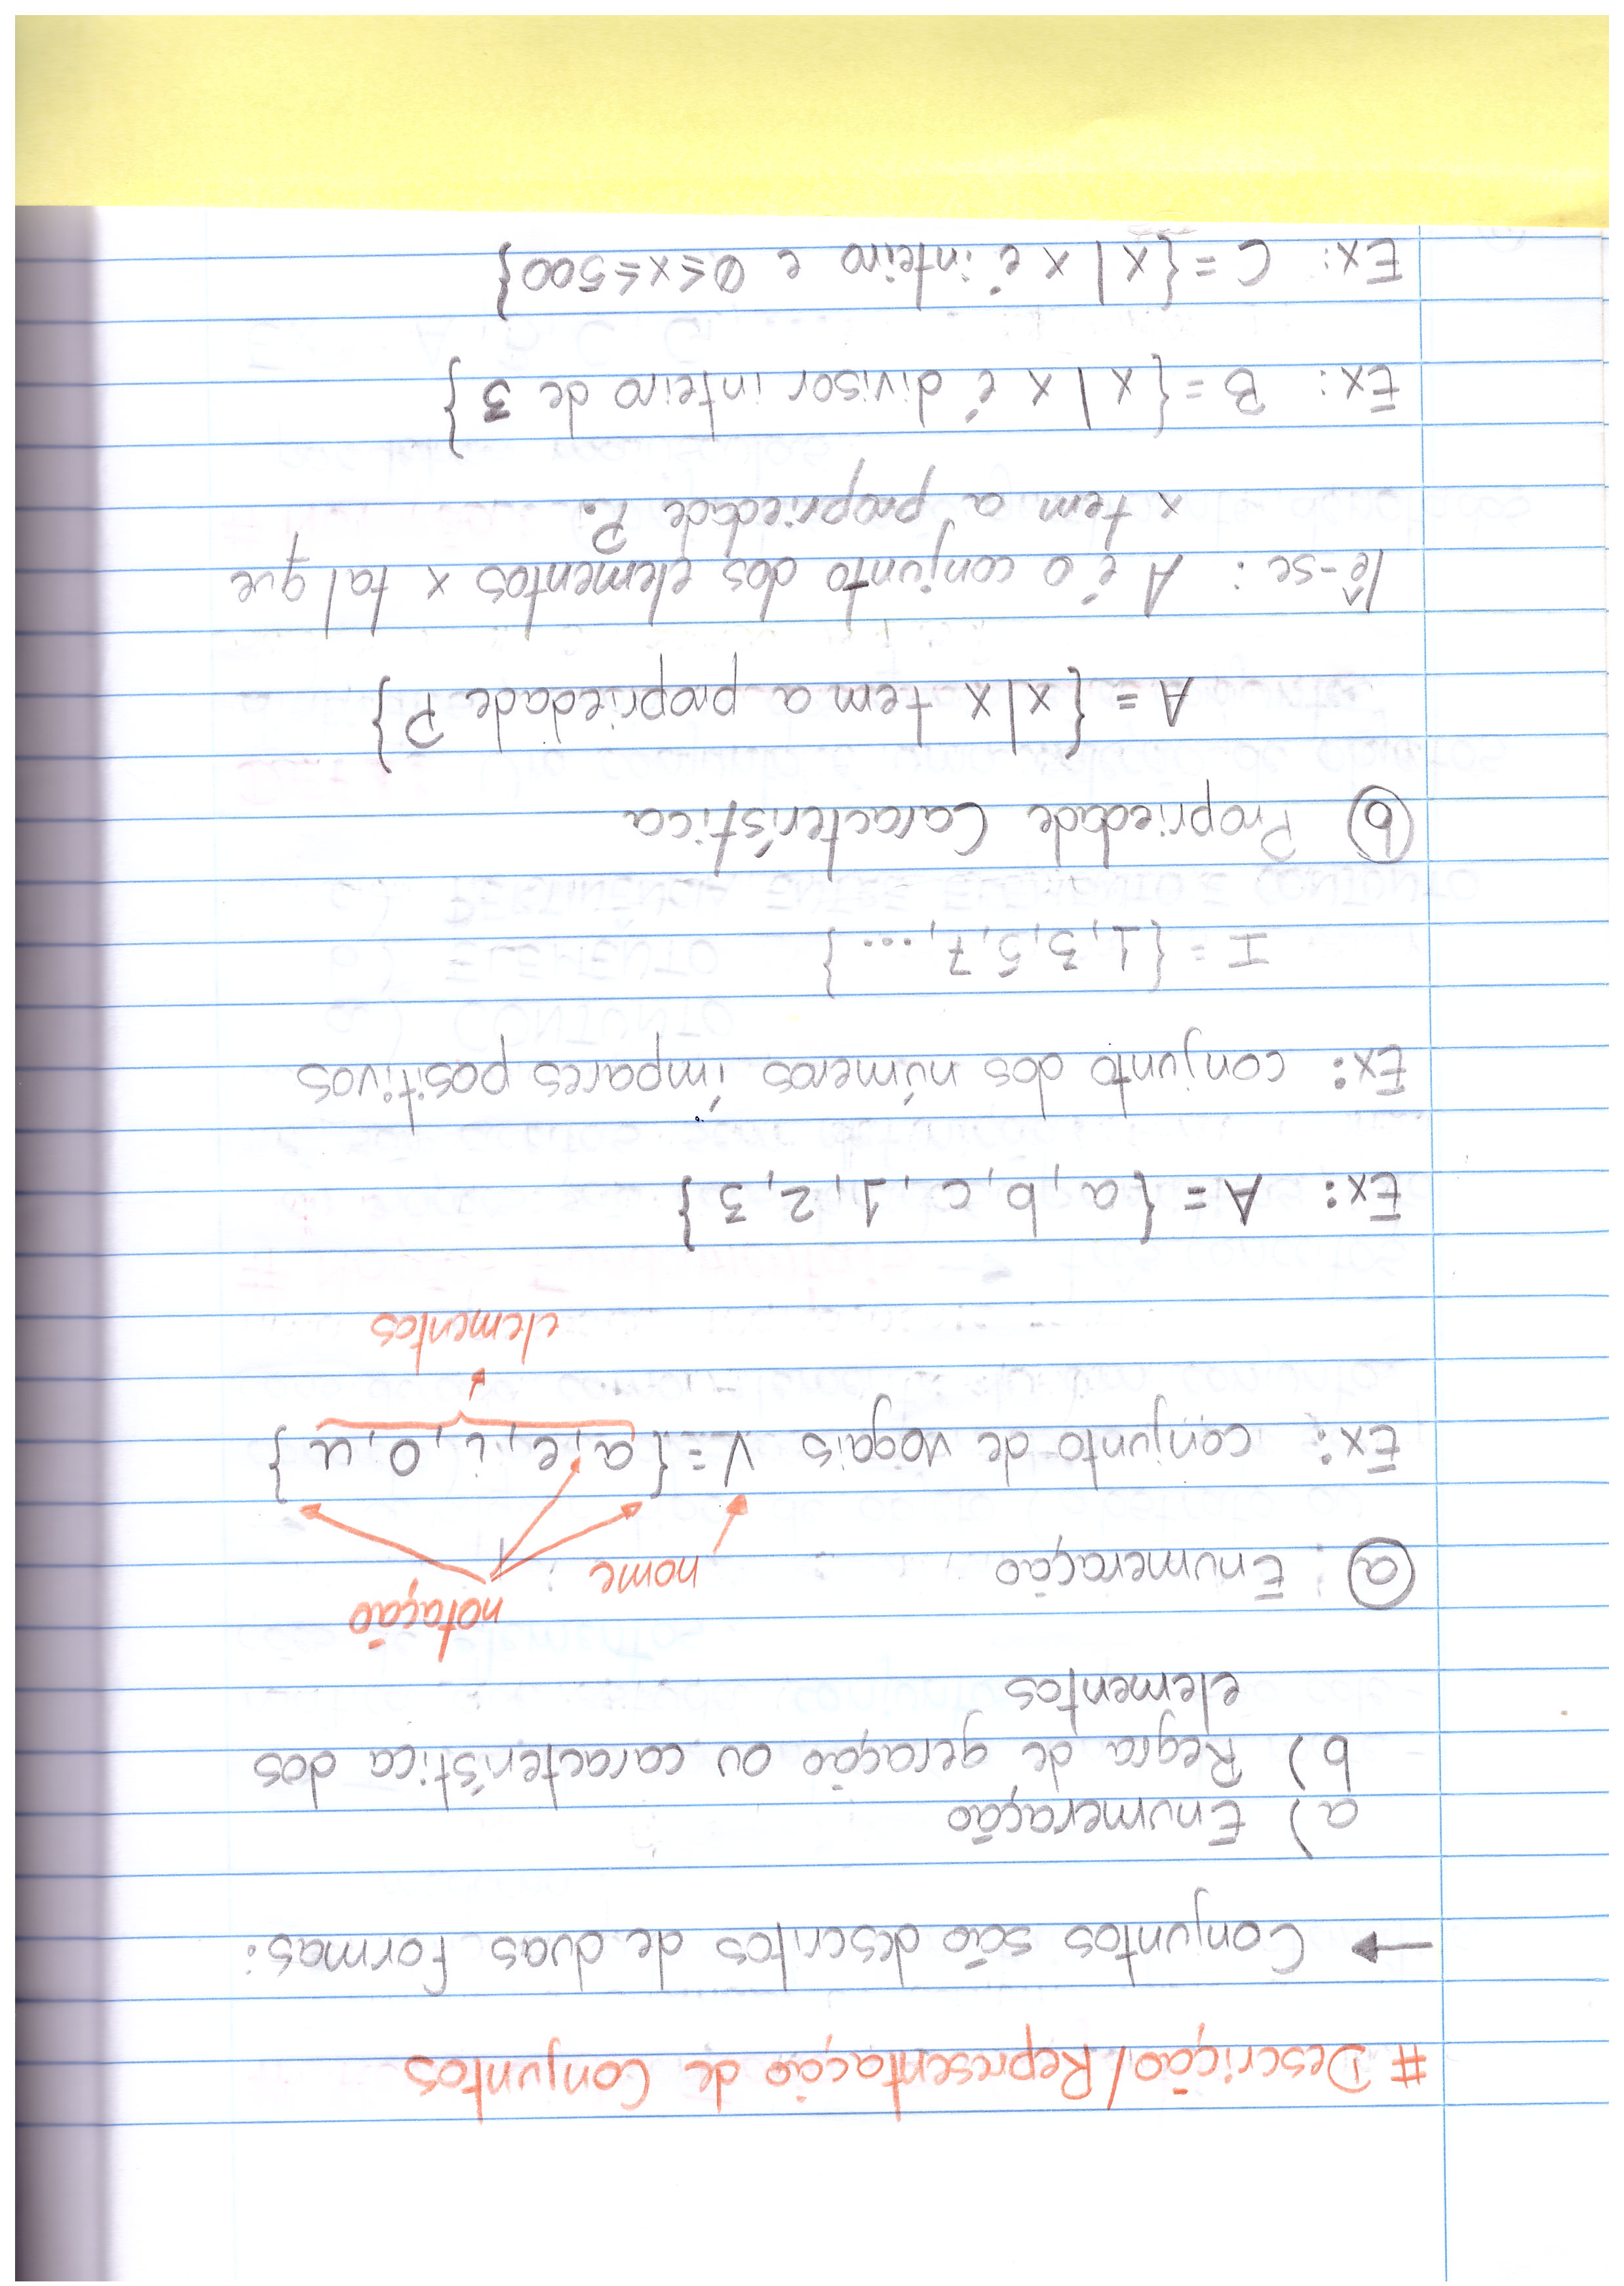 # Descrição/Representação de Conjuntos
→ Conjuntos são descritos de duas formas:
a) Enumeração
b) Regra de geração ou característica dos
elementos
notação
ⓐ Enumeração
nome
Ex: conjunto de vogais V={a,e,i,o,u}
elementos
Ex: A = {a,b,c,1,2,3}
Ex: conjunto dos números ímpares positivos
I = {1,3,5,7,...}
ⓑ Propriedade Característica
A = {x|x tem a propriedade P}
lê-se: A é o conjunto dos elementos x tal que
x tem a propriedade P.
Ex: B = {x|x é divisor inteiro de 3}
Ex: C = {x|x é inteiro e 0≤x≤500}